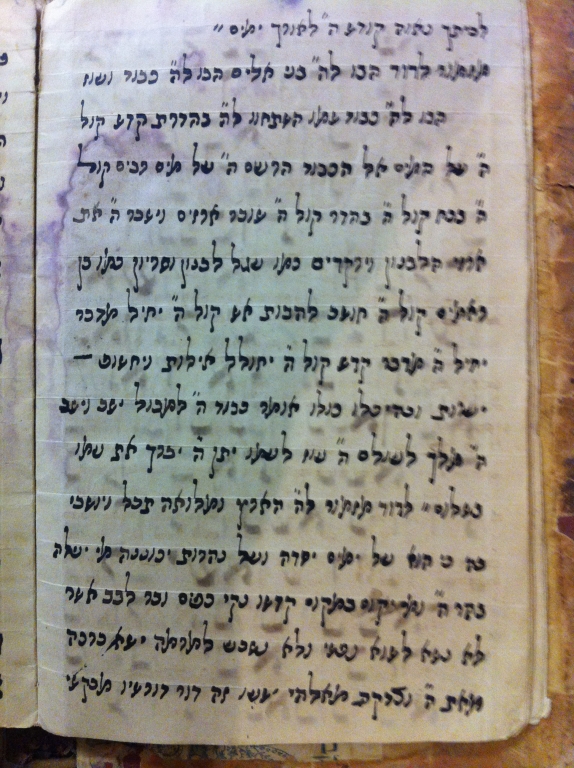 לביתך נאוה קודש ה" לאורך ימים "
מזמור לדוד הבו לה" בני אלים הבו לה" כבוד ועוז
הבו לה" כבוד שמו השתחוו לה" בהדרת קדש קול
ה" על המים אל הכבוד הרעים ה" על מים רבים קול
ה" בכח קול ה" בהדר קול ה" שובר ארזים וישבר ה" את
ארזי הלבנון וירקידם כמו עגל לבנון ושריון כמו בן
ראמים קול ה" חוצב להבות אש קול ה" יחיל מדבר
יחיל ה" מדבר קדש קול ה" יחולל אילות ויחשוף —
יערות ובהיכלו כולו אומר כבוד ה" למבול ישב וישב
ה" מלך לעולם ה" עוז לעמו יתן ה" יברך את עמו
בשלום " לדוד מזמור לה" הארץ ומלואה תבל ויושבי
בה כי הוא על ימים יסדה ועל נהרות יכוננה מי יעלה
בהר ה" ומי יקום במקום קדשו נקי כפים ובר לבב אשר
לא נשא לשוא נפשי ולא נשבע למרמה ישא ברכה
מאת ה" וצדקה מאלהי ישעו זה דור דורשיו מבקשי